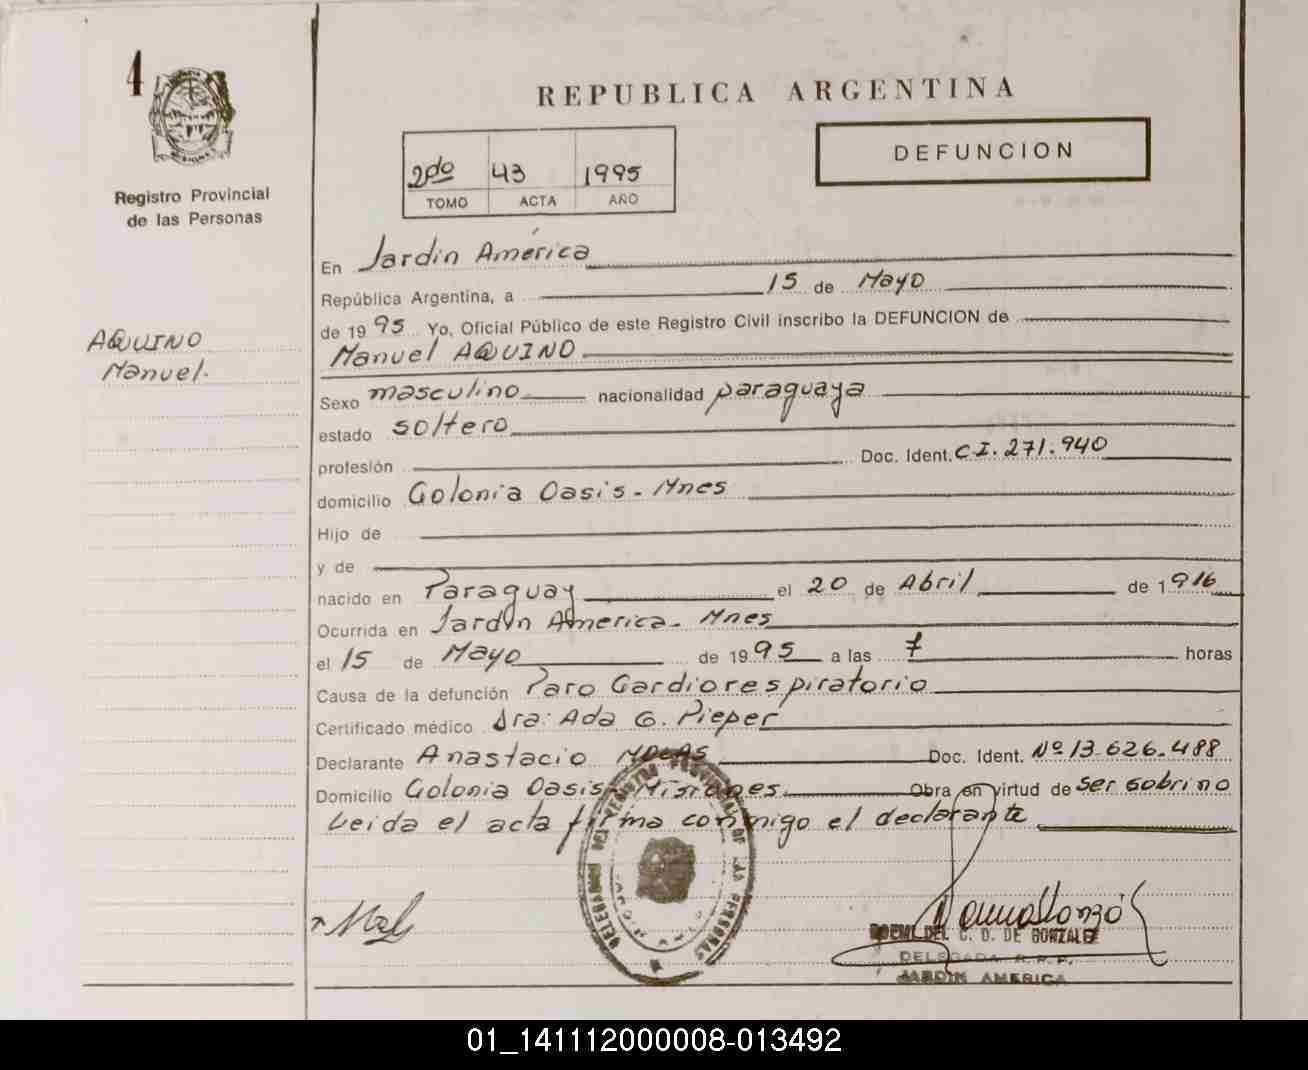 4
Registro Provincial
de las Personas
AQUINO
Manuel.
REPUBLICA ARGENTINA
2do 43 1995
TOMO ACTA AÑO
DEFUNCION
En Jardin América
República Argentina, a 15 de Mayo
de 1995 Yo, Oficial Público de este Registro Civil inscribo la DEFUNCION de
Manuel AQUINO
Sexo masculino nacionalidad paraguaya
estado soltero
profesión Doc. Ident. C.I. 271.940
domicilio Colonia Oasis - Mnes
Hijo de
y de
nacido en Paraguay el 20 de Abril de 1916
Ocurrida en Jardin America - Mnes
el 15 de Mayo de 1995 a las 7 horas
Causa de la defunción Paro Cardiorespiratorio
Certificado médico Dra: Ada G. Pieper
Declarante Anastacio Doc. Ident. Nº 13.626.488
Domicilio Colonia Oasis - Misiones Obra en virtud de ser sobrino
Leida el acta firma conmigo el declarante
DELEGACION DEL REGISTRO PROVINCIAL DE LAS PERSONAS
NOEMI DEL C. D. DE GONZALEZ
DELEGADA R.P.P.
JARDIN AMERICA
01_141112000008-013492